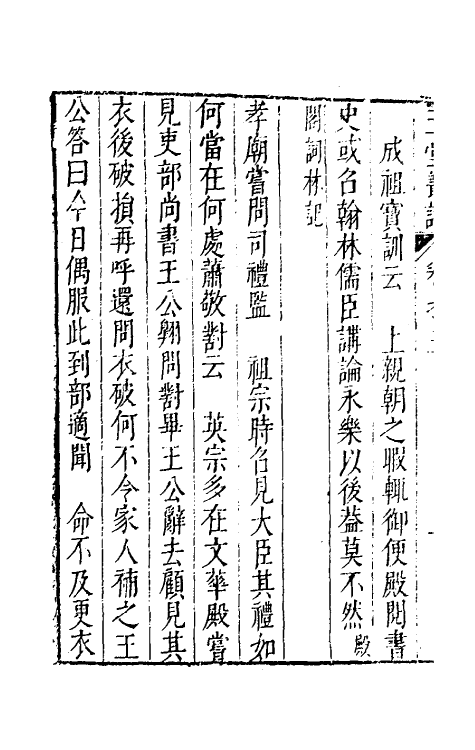 成祖寶訓云　上親朝之暇輒御便殿閱書
史或名翰林儒臣講論永樂以後葢莫不然殿
閣詞林記
孝廟嘗問司禮監　祖宗時名見大臣其禮如
何當在何處蕭敬對云　英宗多在文華殿嘗
見吏部尚書王公翱問對畢王公辭去顧見其
衣後破損再呼還問衣破何不令家人補之王
公答曰今日偶服此到部適聞　命不及更衣